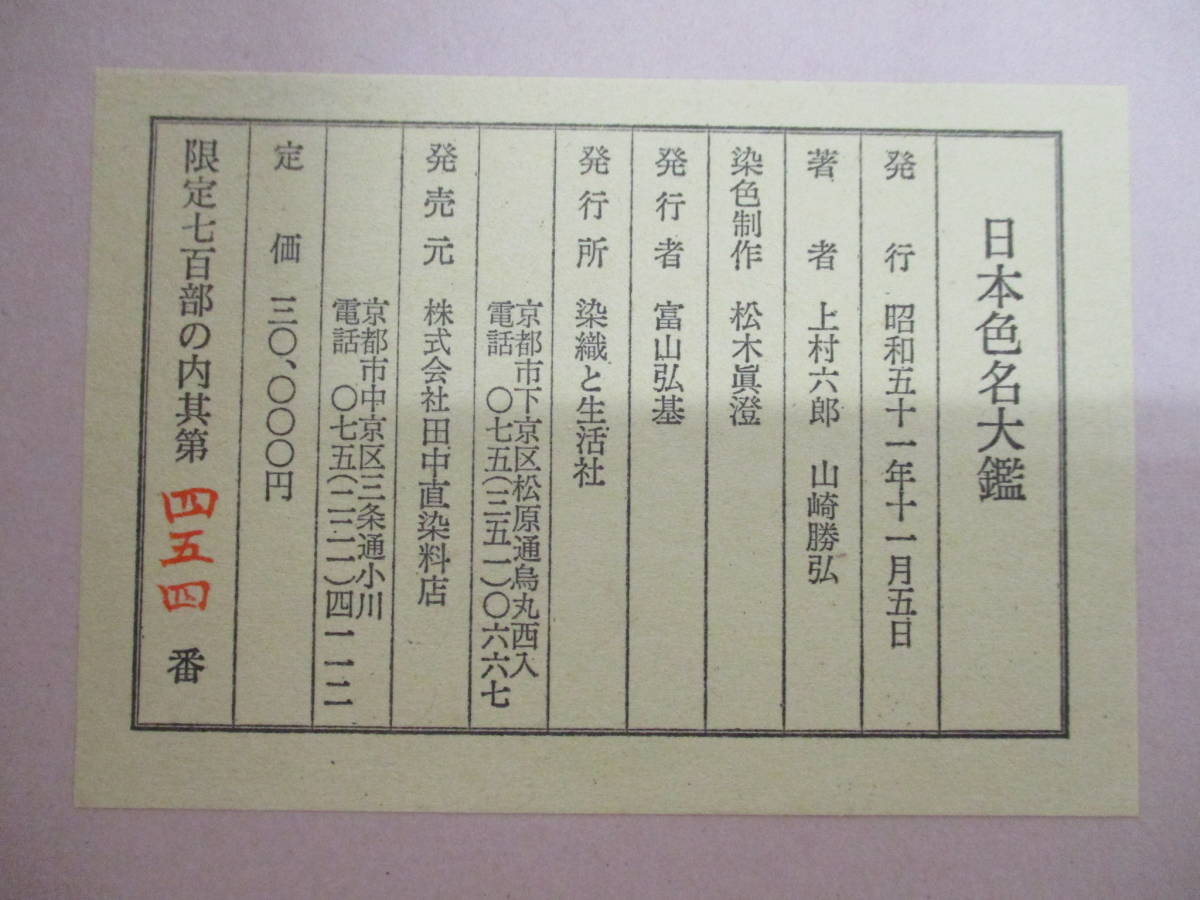 日本色名大鑑
発行 昭和五十一年十一月五日
著者 上村六郎 山崎勝弘
染色制作 松木眞澄
発行者 富山弘基
発行所 染織と生活社
京都市下京区松原通烏丸西入
電話 〇七五(三五一)〇六六七
発売元 株式会社田中直染料店
京都市中京区三条通小川
電話 〇七五(二二一)四一一二
定価 三〇、〇〇〇円
限定七百部の内其第 四五四 番